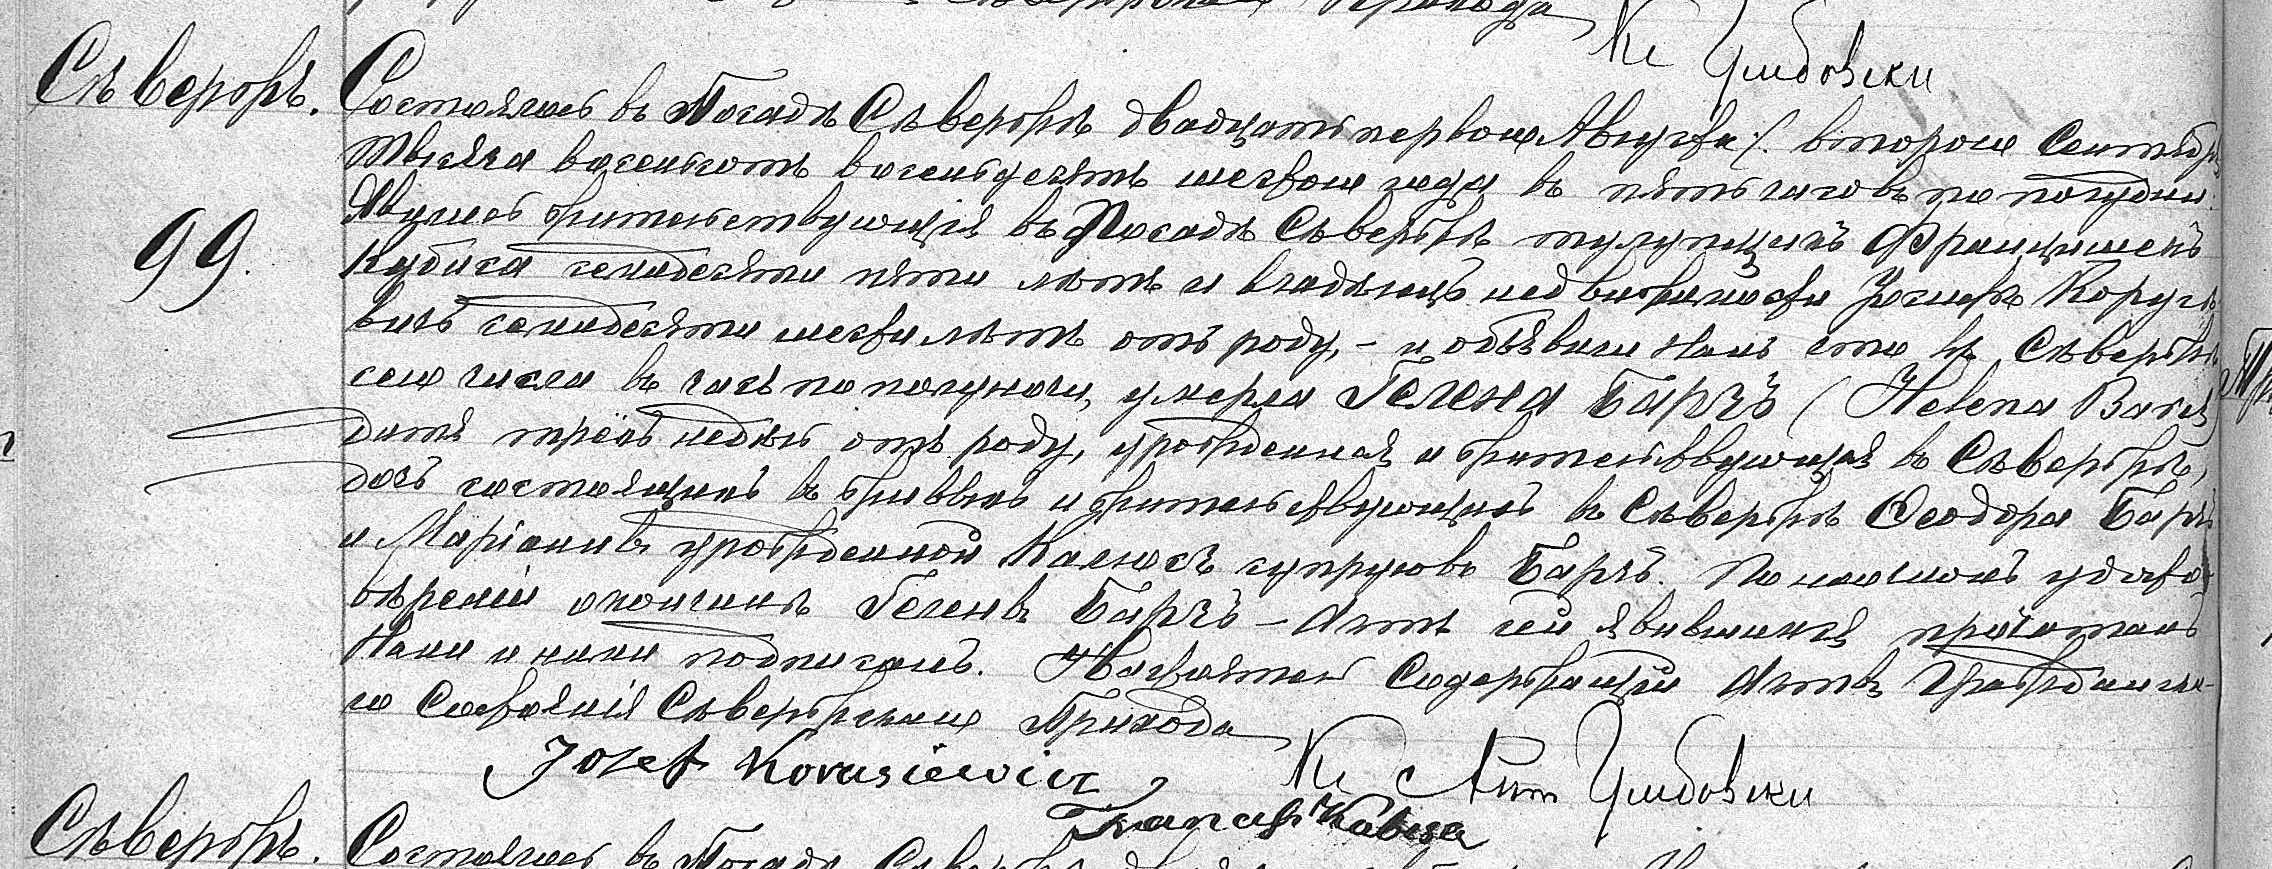 Прихода
Кс Гумбовски
Сѣверѣжъ.
99.
Состоялось въ Посадѣ Сѣверѣжѣ двадцать перваго Августа /. втораго Сентября
тысяча восемьсотъ восемьдесятъ шестаго года въ пять часовъ по полудни.
Явились жительствующія въ Посадѣ Сѣверѣжѣ Францишекъ
Кабиса семидесяти пяти лѣтъ и владѣлецъ недвижимости Іосифъ Корусѣ-
вичъ семидесяти шести лѣтъ отъ роду, – и объявили намъ что въ Сѣверѣжѣ
сего числа въ часъ по полуночи, умерла Гелена Барчъ (Helena Barcz)
дитя трехъ недѣль отъ роду, урожденная и жительствующая въ Сѣверѣжѣ,
дочь состоящихъ въ живыхъ и жительствующихъ въ Сѣверѣжѣ Ѳеодора Барчъ
и Маріанны урожденной супруговъ Барчъ. По наочномъ удосто-
вѣреніи о кончинѣ Гелены Барчъ – Актъ сей явившимся прочитанъ
Нами и ними подписанъ. Настоятель Содержащій Акты Гражданска-
го Состоянія Сѣверѣжскаго Прихода
Józef Korusiewicz Кс Ант Гумбовски
Franciszek Kabisa
Сѣверѣжъ.
Состоялось въ Посадѣ